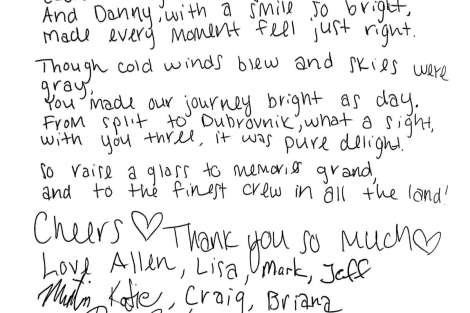 And Danny, with a smile so bright,
made every moment feel just right.
Though cold winds blew and skies were
gray,
You made our journey bright as day.
From split to Dubrovnik, what a sight,
with you three, it was pure delight.
So raise a glass to memories grand,
and to the finest crew in all the land!
Cheers♡ Thank you so much♡
Love Allen, Lisa, Mark, Jeff
Katie, Craig, Briana